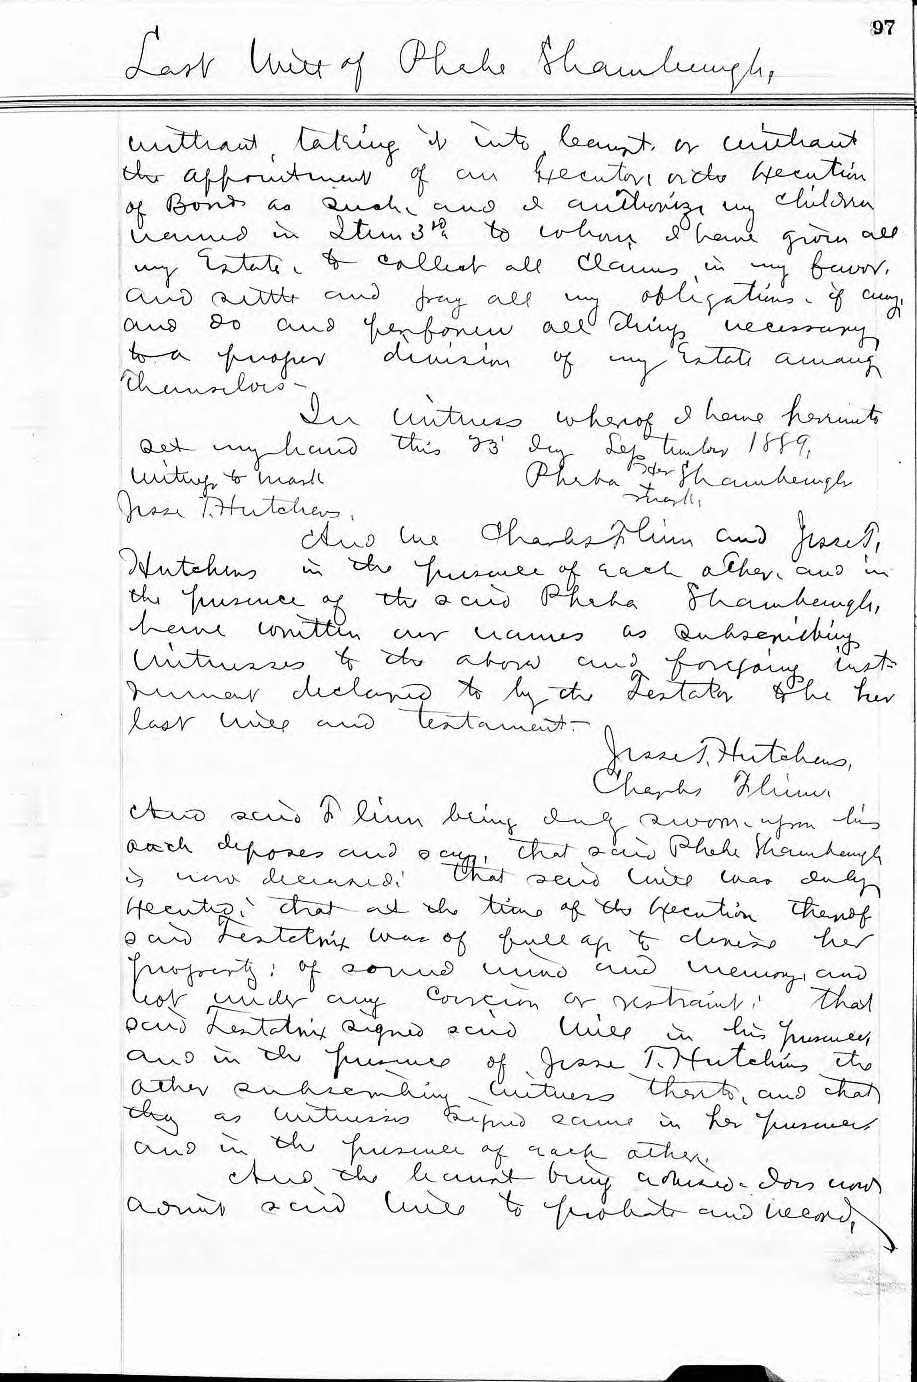 97
Last Will of Phebe Shambaugh,
without, taking it into Court. or without
the appointment of an Executor, or the Execution
of Bond as such, and I authorize my children
named in Item 3rd to whom I have given all
my Estate, to collect all claims in my favor,
and settle and pay all my obligations, if any,
and do and perform all things necessary
to a proper division of my Estate among
themselves—
In witness whereof I have hereunto
set my hand this 23 day September 1889,
Witness to mark Pheba Her Shambaugh
mark,
Jesse T. Hutchens,
And we Charles Flinn and Jesse T,
Hutchens in the presence of each other, and in
the presence of the said Pheba Shambaugh,
have written our names as subscribing
witnesses to the above and foregoing inst-
rument declared to by the Testator to be her
last will and testament—
Jesse T. Hutchens,
Charles Flinn,
And said Flinn being duly sworn, upon his
oath deposes and says, that said Phebe Shambaugh
is now deceased; that said will was duly
Executed; that at the time of the Execution thereof
said Testatrix was of full age to devise her
property; of sound mind and memory, and
not under any coercion or restraint; that
said Testatrix signed said will in his presence,
and in the presence of Jesse T. Hutchins the
other subscribing witness thereto, and that
they as witnesses signed same in her presence
and in the presence of each other,
And the Court being advised, does now
admit said will to probate and record,